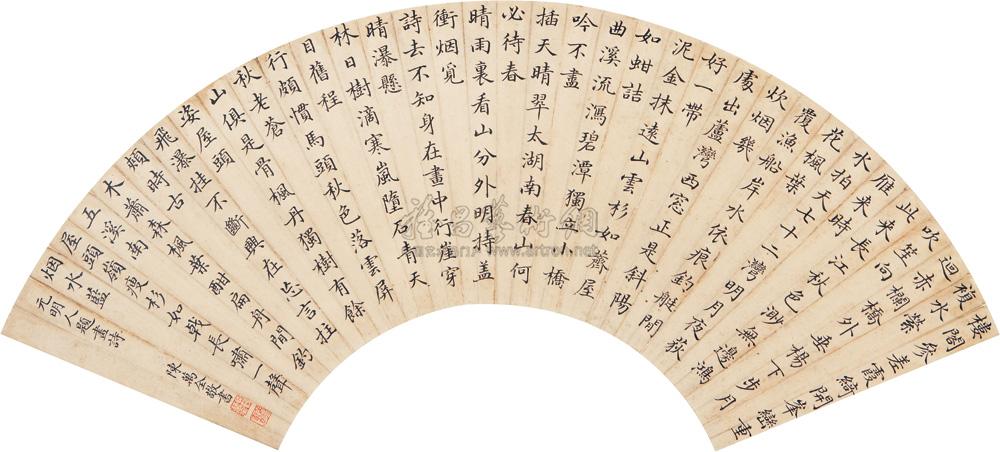 樓閣參差霞綺開峯巒重
複水縈
迴赤欄橋外垂楊下步月
吹笙向
此來長江秋色渺無邊鴻
雁來時
水拍天七十二灣明月夜荻
花楓葉
覆漁船岸水依痕釣艇閒
炊烟幾
處出蘆灣西窓正是斜陽
好一帶
泥金抹遠山雲杉如薺屋
如蚶詰
曲溪流瀉碧潭獨立小橋
吟不盡
插天晴翠太湖南春山何
必待春
晴雨裏看山分外明持蓋
衝烟覓
詩去不知身在畫中行崖穿
晴瀑懸
林日樹滴寒嵐墮石看天
日舊程
行頗慣馬頭秋色落雲屏
秋老蒼
山俱是骨楓丹獨樹有餘
姿屋頭
飛瀑挂不斷興在忘言拄
頰時古
木蕭森楓葉酣扁舟閒釣
五溪南
屋頭嶺瘦杉如戟長嘯一聲
烟水藍
元明人題畫詩
陳萬全敬書